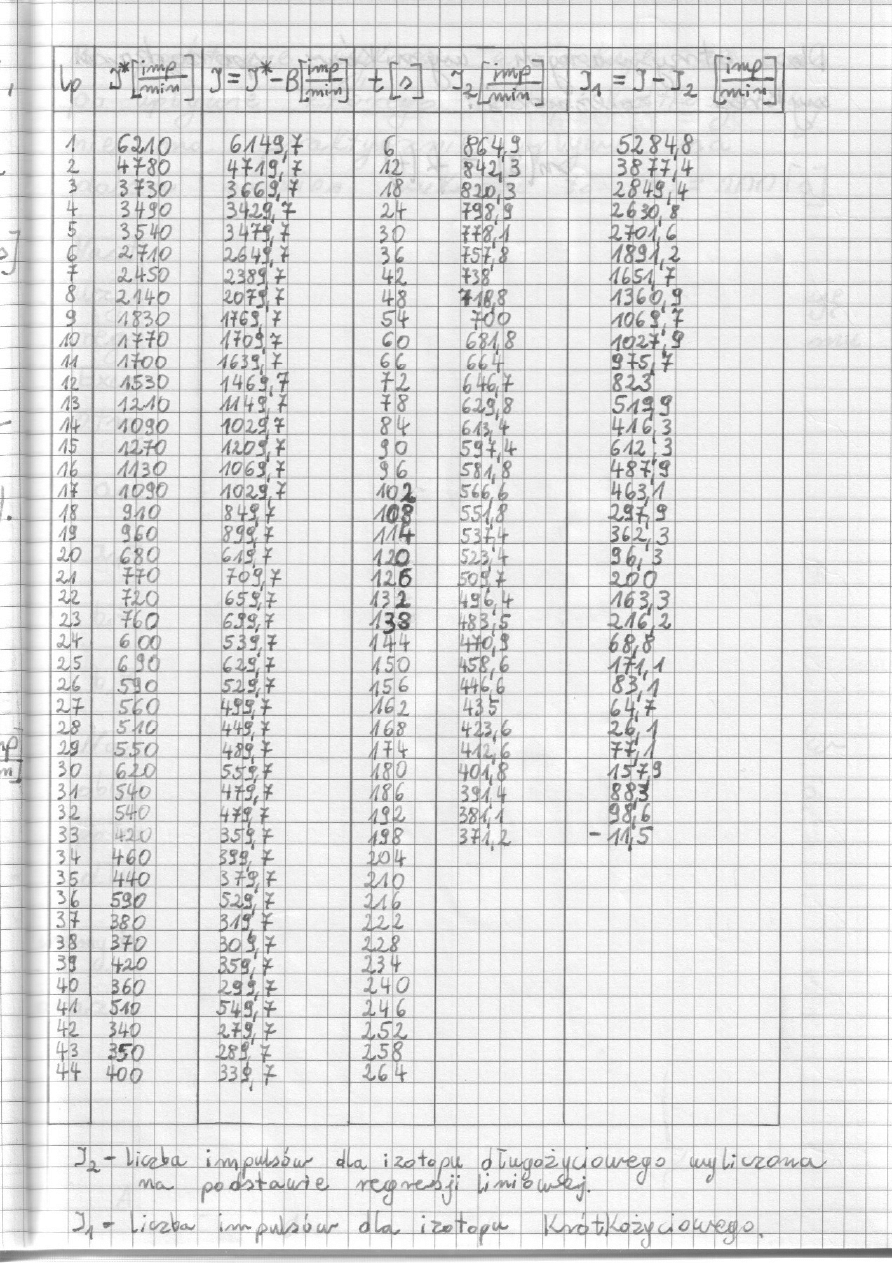 Lp J* [imp/min] J = J* - B [imp/min] t [s] J₂ [imp/min] J₁ = J - J₂ [imp/min]
1 6210 6149,7 6 864,9 5284,8
2 4780 4719,7 12 842,3 3877,4
3 3730 3669,7 18 820,3 2849,4
4 3490 3429,7 24 798,9 2630,8
5 3540 3479,7 30 778,1 2701,6
6 2710 2649,7 36 757,8 1891,2
7 2450 2389,7 42 738 1651,7
8 2140 2079,7 48 718,8 1360,9
9 1830 1769,7 54 700 1069,7
10 1770 1709,7 60 681,8 1027,9
11 1700 1639,7 66 664 975,7
12 1530 1469,7 72 646,7 823
13 1210 1149,7 78 629,8 519,9
14 1090 1029,7 84 613,4 416,3
15 1270 1209,7 90 597,4 612,3
16 1130 1069,7 96 581,8 487,9
17 1090 1029,7 102 566,6 463,1
18 910 849,7 108 551,8 297,9
19 960 899,7 114 537,4 362,3
20 680 619,7 120 523,4 96,3
21 770 709,7 126 509,7 200
22 720 659,7 132 496,4 163,3
23 760 699,7 138 483,5 216,2
24 600 539,7 144 470,9 68,8
25 690 629,7 150 458,6 171,1
26 590 529,7 156 446,6 83,1
27 560 499,7 162 435 64,7
28 510 449,7 168 423,6 26,1
29 550 489,7 174 412,6 77,1
30 620 559,7 180 401,8 157,9
31 540 479,7 186 391,4 88,3
32 540 479,7 192 381,1 98,6
33 420 359,7 198 371,2 -11,5
34 460 399,7 204
35 440 379,7 210
36 590 529,7 216
37 380 319,7 222
38 370 309,7 228
39 420 359,7 234
40 360 299,7 240
41 510 549,7 246
42 340 279,7 252
43 350 289,7 258
44 400 339,7 264
J₂ - liczba impulsów dla izotopu długożyciowego wyliczona
na podstawie regresji liniowej.
J₁ - liczba impulsów dla izotopu krótkożyciowego.